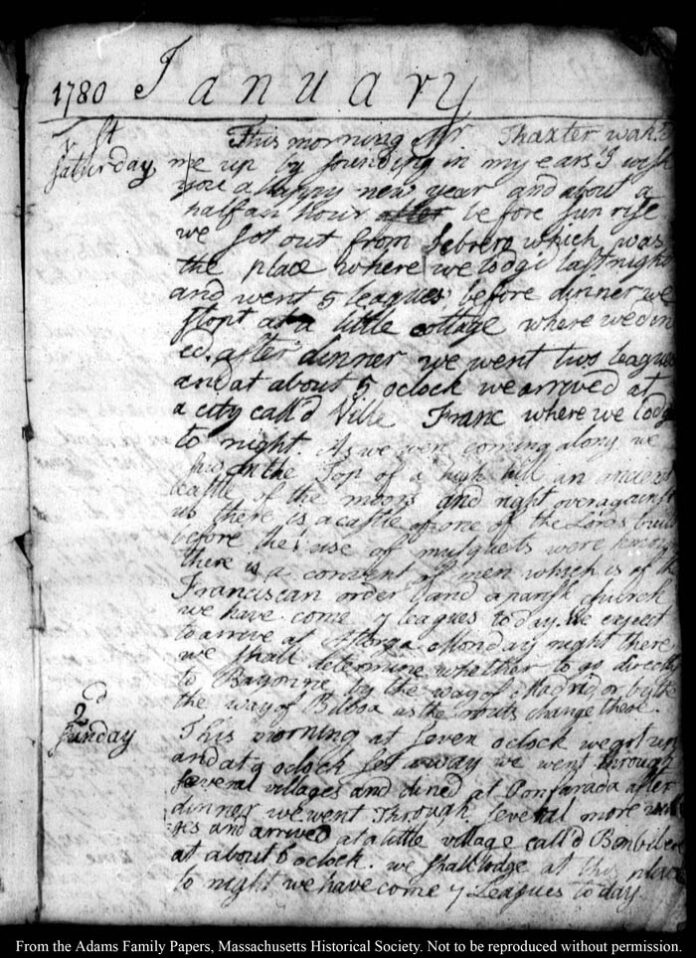 1780 January
1st
Saturday
This morning Mr Thaxter wak'd
me up by sounding in my ears I wish
you a happy new year and about a
half an hour after before sun rise
we sot out from Sebrero which was
the place where we lodg'd last night
and went 5 leagues before dinner we
stopt at a little cottage where we din
ed. after dinner we went two leagues
and at about 5 oclock we arrived at
a city call'd Ville Franc where we lodge
to night. As we were coming along we
saw on the Top of a high hill an ancient
castle of the moors and right over against
us there is a castle of one of the Lords built
before the use of musquets were
there is a convent of men which is of the
Franciscan order and a parish church
we have come 7 leagues to day. We expect
to arrive at Astorga Monday night there
we shall determine whether to go directly
to Bayonne by the way of Madrid or by the
the way of Bilboa as the routs change there.
2d
Sunday
This morning at seven oclock we got up
and at 9 oclock set away we went through
several villages and dined at Ponfarada after
dinner we went Through several more
and arrived at a little village call'd
at about 6 oclock. we shall lodge at this place
to night we have come 7 Leagues to day
From the Adams Family Papers, Massachusetts Historical Society. Not to be reproduced without permission.